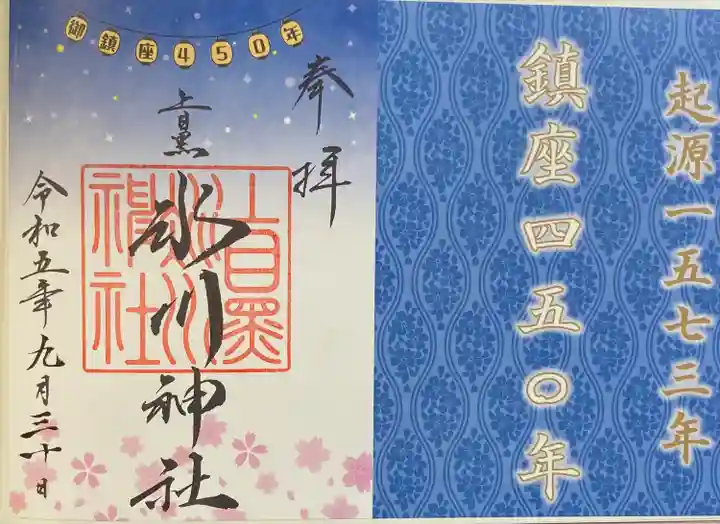 起源一五七三年
鎮座四五〇年
御鎮座450年
奉拝
上目黒
氷川神社
上目黒氷川神社
令和五年九月三十日